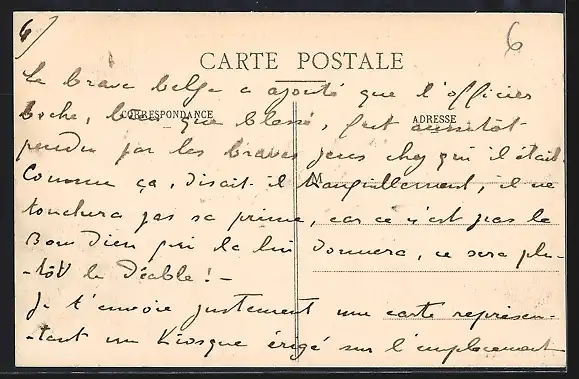 6)
6
CARTE POSTALE
CORRESPONDANCE
ADRESSE
M
Le brave belge a ajouté que l'officier
boche, bien que blessé, fut aussitôt
pendu par les braves gens chez qui il était.
Comme ça, disait-il tranquillement, il ne
touchera pas sa prime, car ce n'est pas le
Bon Dieu qui la lui donnera, ce sera plu-
-tôt le Diable! -
Je t'envoie justement une carte représen-
-tant un Kiosque érigé sur l'emplacement